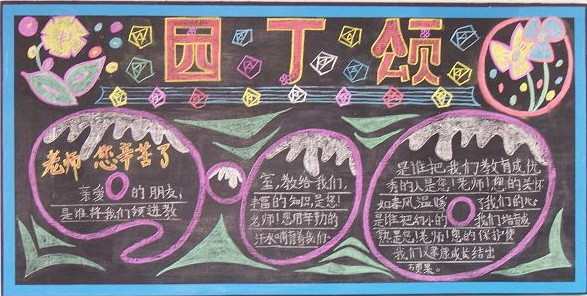 园丁颂
老师 您辛苦了
亲爱的朋友,
是谁将我们领进教
室,教给我们,
丰富的知识,是您!
老师!您用辛勤的
汗水哺育着我们。
是谁把我们教育成优
秀的人是您!老师!您的关怀
如春风,温暖了我们的心
是谁把幼小的我们培育成
熟是您!老师!您的保护使
我们健康成长结出
硕果。